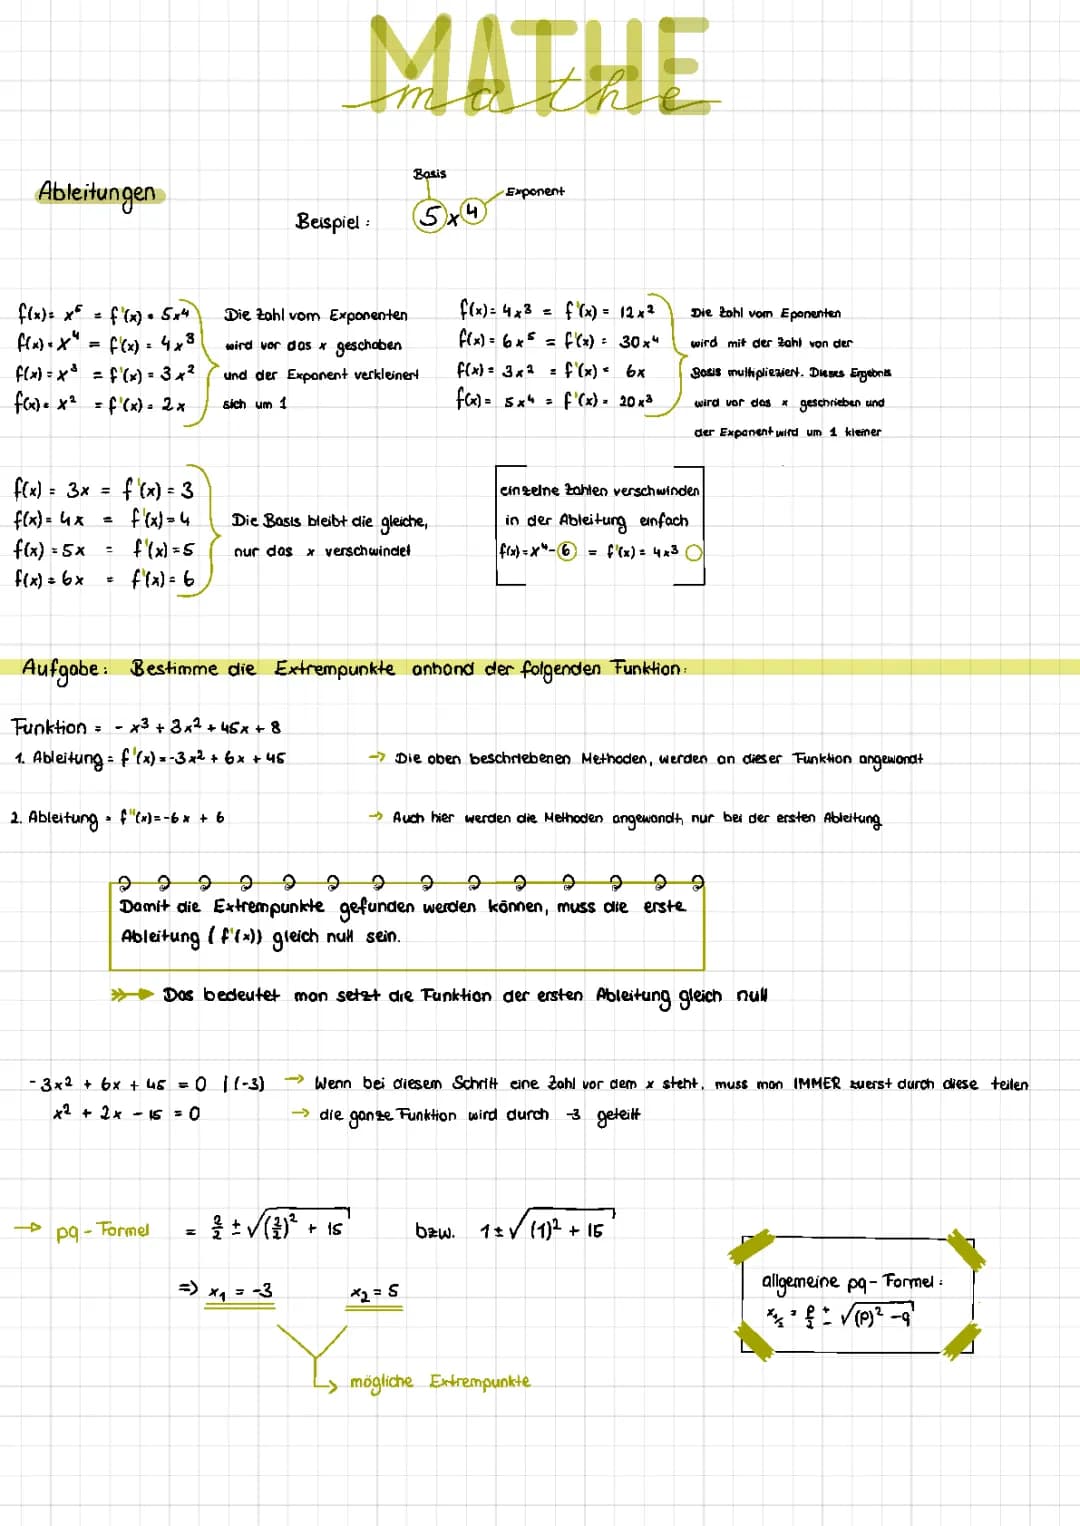 MATHE
mathe
Ableitungen
Beispiel :
Basis
Exponent
5x⁴
f(x)= x⁵ = f'(x) = 5x⁴
f(x) = x⁴ = f'(x) = 4x³
f(x) = x³ = f'(x) = 3x²
f(x) = x² = f'(x) = 2x
Die Zahl vom Exponenten
wird vor das x geschoben
und der Exponent verkleinert
sich um 1
f(x)= 4x³ = f'(x) = 12x²
f(x) = 6x⁵ = f'(x) = 30x⁴
f(x) = 3x² = f'(x) = 6x
f(x) = 5x⁴ = f'(x) = 20x³
Die Zahl vom Eponenten
wird mit der Zahl von der
Basis multipliziert. Dieses Ergebnis
wird vor das x geschrieben und
der Exponent wird um 1 kleiner
f(x) = 3x = f'(x) = 3
f(x) = 4x = f'(x) = 4
f(x) = 5x = f'(x) = 5
f(x) = 6x = f'(x) = 6
Die Basis bleibt die gleiche,
nur das x verschwindet
einzelne Zahlen verschwinden
in der Ableitung einfach
f(x) = x⁴-6 = f'(x) = 4x³
Aufgabe: Bestimme die Extrempunkte anhand der folgenden Funktion:
Funktion = - x³ + 3x² + 45x + 8
1. Ableitung = f'(x) = -3x² + 6x + 45 → Die oben beschriebenen Methoden, werden an dieser Funktion angewandt
2. Ableitung = f"(x) = -6x + 6 → Auch hier werden die Methoden angewandt, nur bei der ersten Ableitung
Damit die Extrempunkte gefunden werden können, muss die erste
Ableitung (f'(x)) gleich null sein.
Das bedeutet man setzt die Funktion der ersten Ableitung gleich null
-3x² + 6x + 45 = 0 | (-3) → Wenn bei diesem Schritt eine Zahl vor dem x steht, muss man IMMER zuerst durch diese teilen
x² + 2x - 15 = 0 → die ganze Funktion wird durch -3 geteilt
→ pq - Formel = 2/2 ± √(2/2)² + 15 bzw. 1 ± √(1)² + 15
⇒ x₁ = -3 x₂ = 5
mögliche Extrempunkte
allgemeine pq - Formel :
x₁/₂ = p/2 ± √(p)² - q